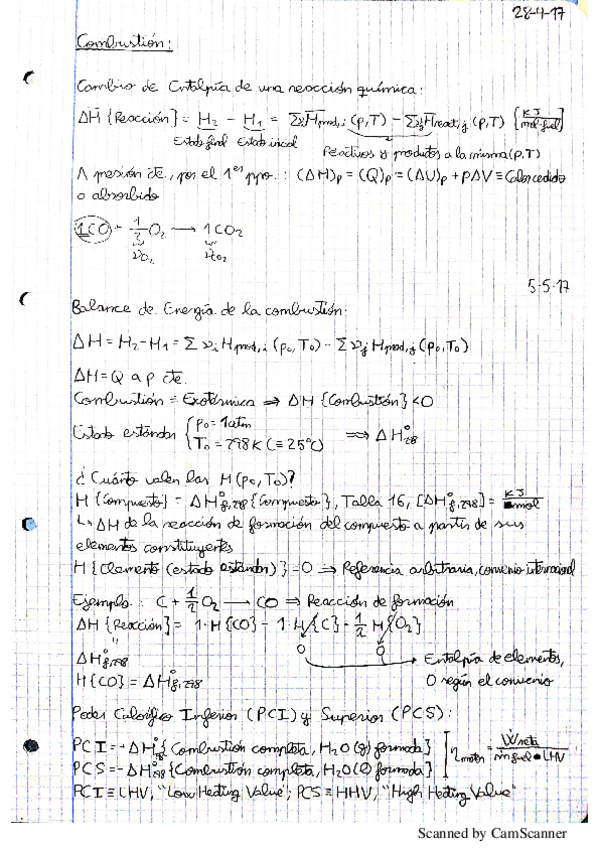 28-4-17
Combustión:
Cambio de Entalpía de una reacción química:
ΔH {Reacción} = H₂ - H₁ = Σνᵢ H̄prod,i (p,T) - Σνⱼ H̄react,j (p,T) [KJ/mol fuel]
Estado final Estado inicial
Reactivos y productos a la misma (p,T)
A presión cte., por el 1er ppo.: (ΔH)p = (Q)p = (ΔU)p + pΔV ≡ Calor cedido
o absorbido
1CO + 1/2 O₂ → 1CO₂
νO₂ νCO₂
5-5-17
Balance de Energía de la combustión:
ΔH = H₂-H₁ = Σ νᵢ Hprod,i (p₀,T₀) - Σ νⱼ Hprod,j (p₀,T₀)
ΔH = Q a p cte.
Combustión = Exotérmica ⇒ ΔH {Combustión} < 0
Estado estándar { p₀ = 1 atm
T₀ = 298K (≡ 25°C) ⇒ ΔH°298
¿Cuánto valen las H(p₀,T₀)?
H {Compuesto} = ΔH°f,298 {Compuesto}, Tabla 16, [ΔH°f,298] = KJ/mol
↳ ΔH de la reacción de formación del compuesto a partir de sus
elementos constituyentes
H {Elemento (estado estándar)} = 0 ⇒ Referencia arbitraria, convenio internacional
Ejemplo: C + 1/2 O₂ → CO ⇒ Reacción de formación
ΔH {Reacción} = 1·H {CO} - 1·H {C} - 1/2 H {O₂}
" 0 0 → Entalpía de elementos,
ΔH°f,298
0 según el convenio
H {CO} = ΔH°f,298
Poder Calorífico Inferior (PCI) y Superior (PCS):
PCI = -ΔH°298 {Combustión completa, H₂O (g) formada}
PCS = -ΔH°298 {Combustión completa, H₂O (l) formada}
ηmotor = Ẇneta / ṁfuel • LHV
PCI ≡ LHV, "Low Heating Value"; PCS ≡ HHV, "High Heating Value"
Scanned by CamScanner